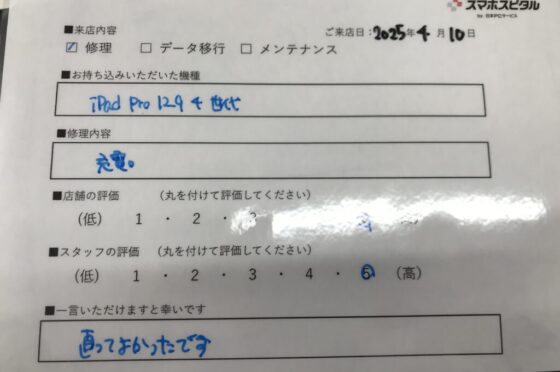 スマホスピタル
by 日本PCサービス
■来店内容
ご来店日：2025年4月10日
☑ 修理 □ データ移行 □ メンテナンス
■お持ち込みいただいた機種
iPad Pro 12.9 4 世代
■修理内容
充電。
■店舗の評価 （丸を付けて評価してください）
（低） 1 ・ 2 ・
■スタッフの評価 （丸を付けて評価してください）
（低） 1 ・ 2 ・ 3 ・ 4 ・ 5 （高）
■一言いただけますと幸いです
直ってよかったです